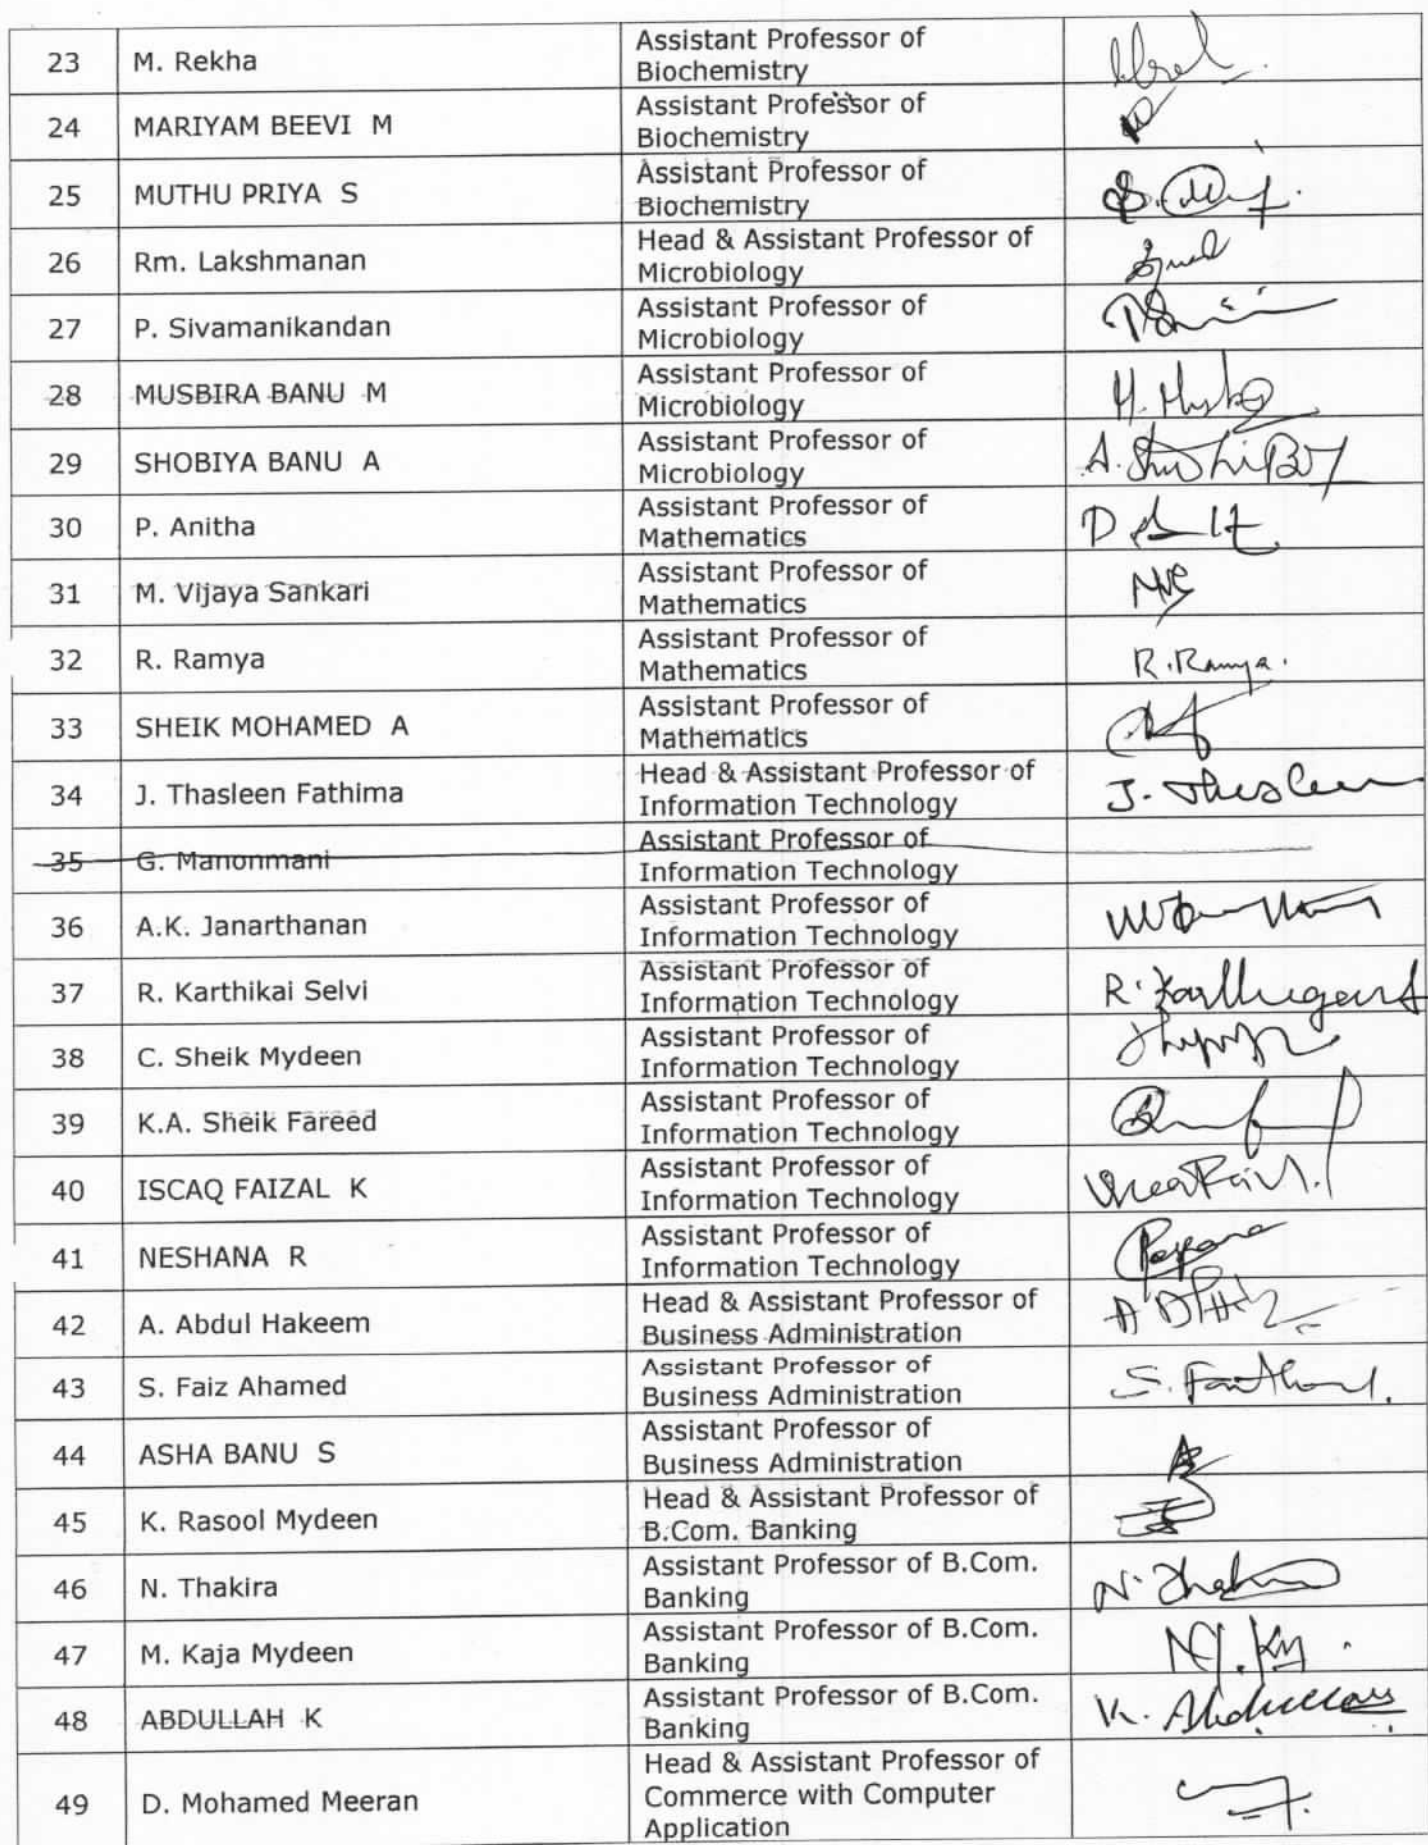 23 M. Rekha Assistant Professor of
Biochemistry
24 MARIYAM BEEVI M Assistant Professor of
Biochemistry
25 MUTHU PRIYA S Assistant Professor of
Biochemistry
26 Rm. Lakshmanan Head & Assistant Professor of
Microbiology
27 P. Sivamanikandan Assistant Professor of
Microbiology
28 MUSBIRA BANU M Assistant Professor of
Microbiology
29 SHOBIYA BANU A Assistant Professor of
Microbiology
30 P. Anitha Assistant Professor of
Mathematics
31 M. Vijaya Sankari Assistant Professor of
Mathematics
32 R. Ramya Assistant Professor of
Mathematics R. Ramya.
33 SHEIK MOHAMED A Assistant Professor of
Mathematics
34 J. Thasleen Fathima Head & Assistant Professor of
Information Technology J. Thasleen
35 G. Manonmani Assistant Professor of
Information Technology
36 A.K. Janarthanan Assistant Professor of
Information Technology
37 R. Karthikai Selvi Assistant Professor of
Information Technology
38 C. Sheik Mydeen Assistant Professor of
Information Technology
39 K.A. Sheik Fareed Assistant Professor of
Information Technology
40 ISCAQ FAIZAL K Assistant Professor of
Information Technology
41 NESHANA R Assistant Professor of
Information Technology
42 A. Abdul Hakeem Head & Assistant Professor of
Business Administration
43 S. Faiz Ahamed Assistant Professor of
Business Administration
44 ASHA BANU S Assistant Professor of
Business Administration
45 K. Rasool Mydeen Head & Assistant Professor of
B.Com. Banking
46 N. Thakira Assistant Professor of B.Com.
Banking
47 M. Kaja Mydeen Assistant Professor of B.Com.
Banking
48 ABDULLAH K Assistant Professor of B.Com.
Banking K. Abdullah
49 D. Mohamed Meeran Head & Assistant Professor of
Commerce with Computer
Application